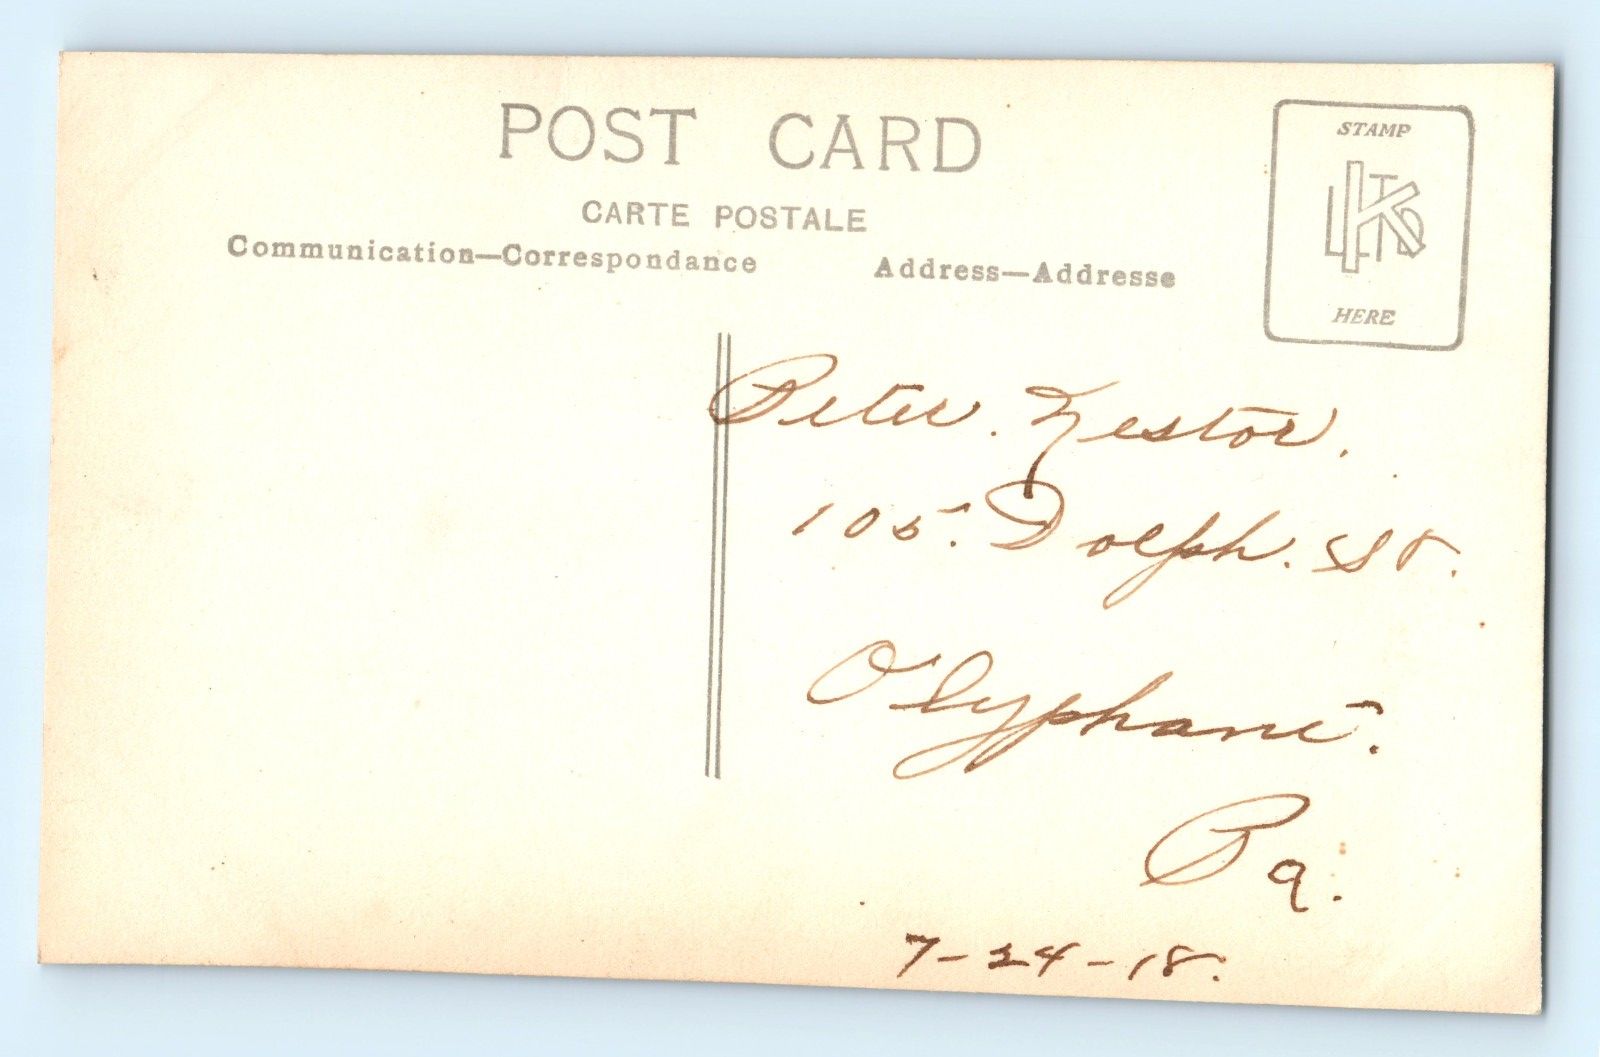 POST CARD
CARTE POSTALE
Communication—Correspondance
Address—Addresse
STAMP
HERE
Peter. Nestor.
105. Dolph. St.
Olyphant.
Pa.
7-24-18.